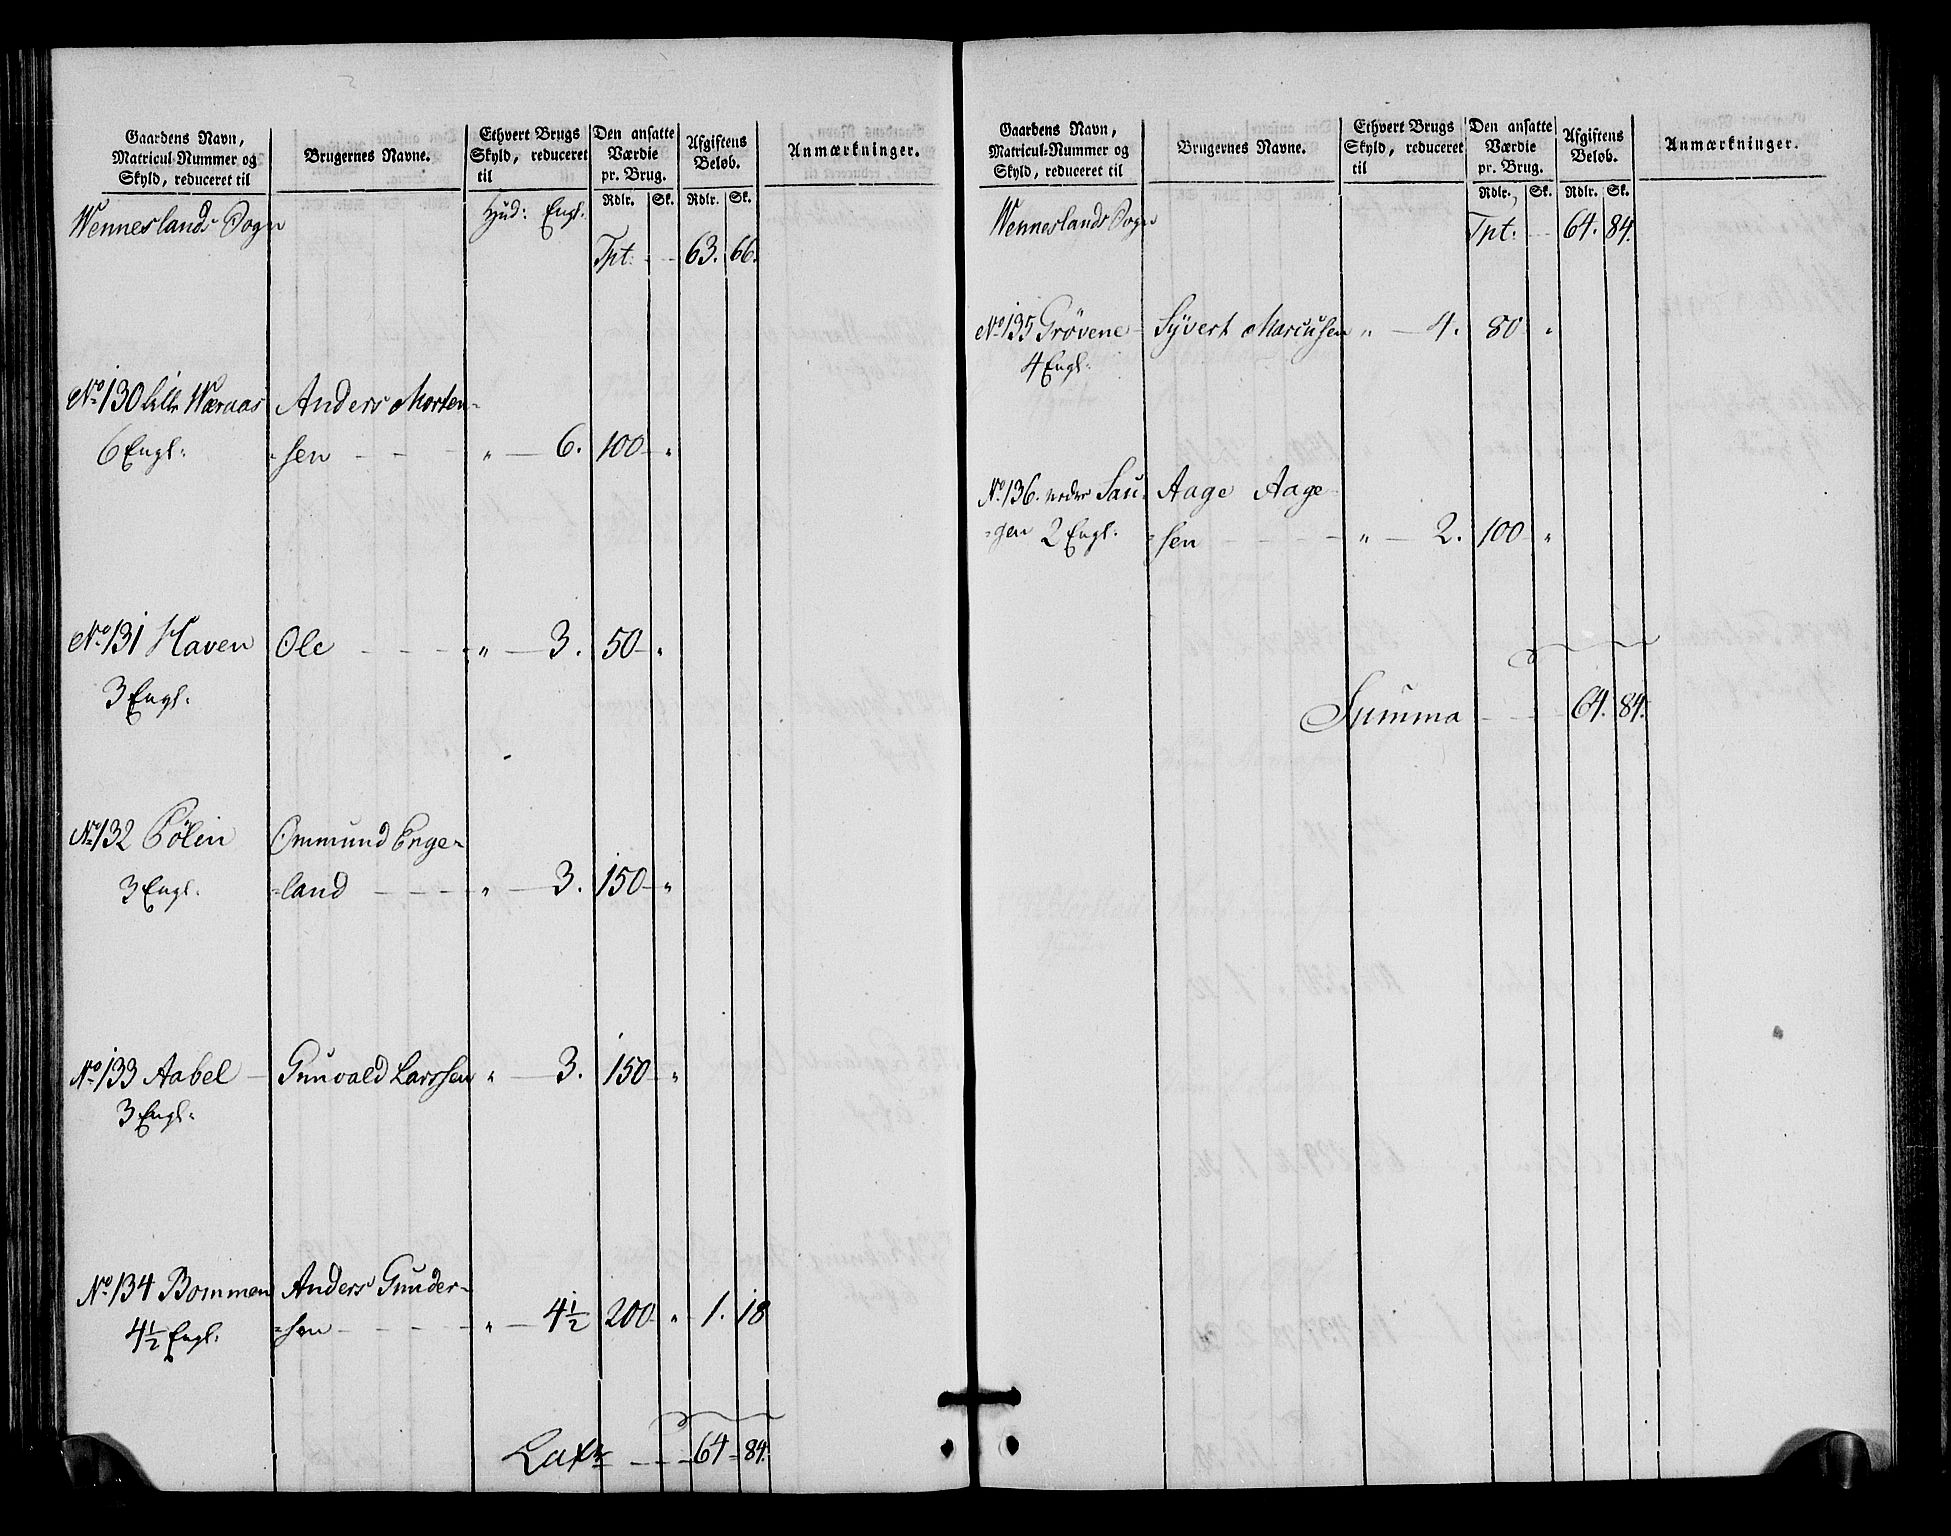 Gaardens Navn,
Matricul-Nummer og
Skyld, reduceret til
Brugernes Navne.
Ethvert Brugs
Skyld, reduceret
til
Den ansatte
Værdie
pr. Brug.
Afgiftens
Beløb.
Anmærkninger.
Rdlr. Sk. Rdlr. Sk.
Wenneslands Sogn Hud: Engl:
Tpt: 63. 66.
No 130 Lille Wæraas Anders Morten-
6 Engl: =sen " 6. 100 "
No 131 Haven Ole " 3. 50 "
3 Engl:
No 132 Ommund Enge-
3 Engl: =land " 3. 150 "
No 133 Aabel Gunvald Larssen " 3. 150 "
3 Engl:
No 134 Bommen Anders Gunder-
4½ Engl: =sen " 4½ 200 " 1. 18
Latr 64 84.
Gaardens Navn,
Matricul-Nummer og
Skyld, reduceret til
Brugernes Navne.
Ethvert Brugs
Skyld, reduceret
til
Den ansatte
Værdie
pr. Brug.
Afgiftens
Beløb.
Anmærkninger.
Rdlr. Sk. Rdlr. Sk.
Wenneslands Sogn Tpt: 64. 84.
No 135 Grövene Syvert Marcusen " 4. 80 "
4 Engl:
No 136. nedre Sau- Aage Aage-
=gen 2 Engl: =sen " 2. 100 "
Summa 64. 84.